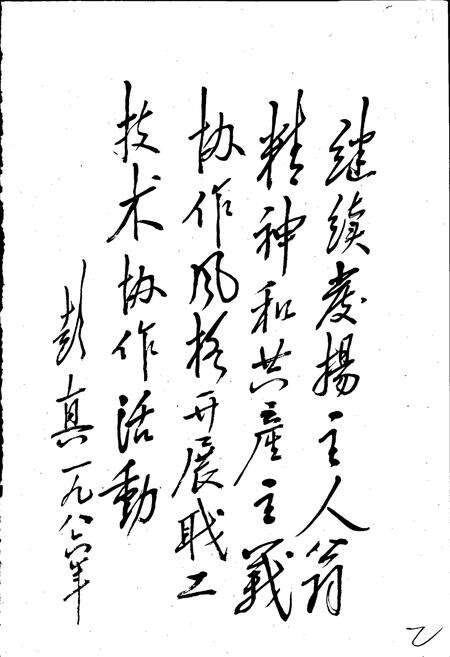 继续发揚主人翁
精神和共產主義
协作风格开展职工
技术协作活動
彭真一九八六年